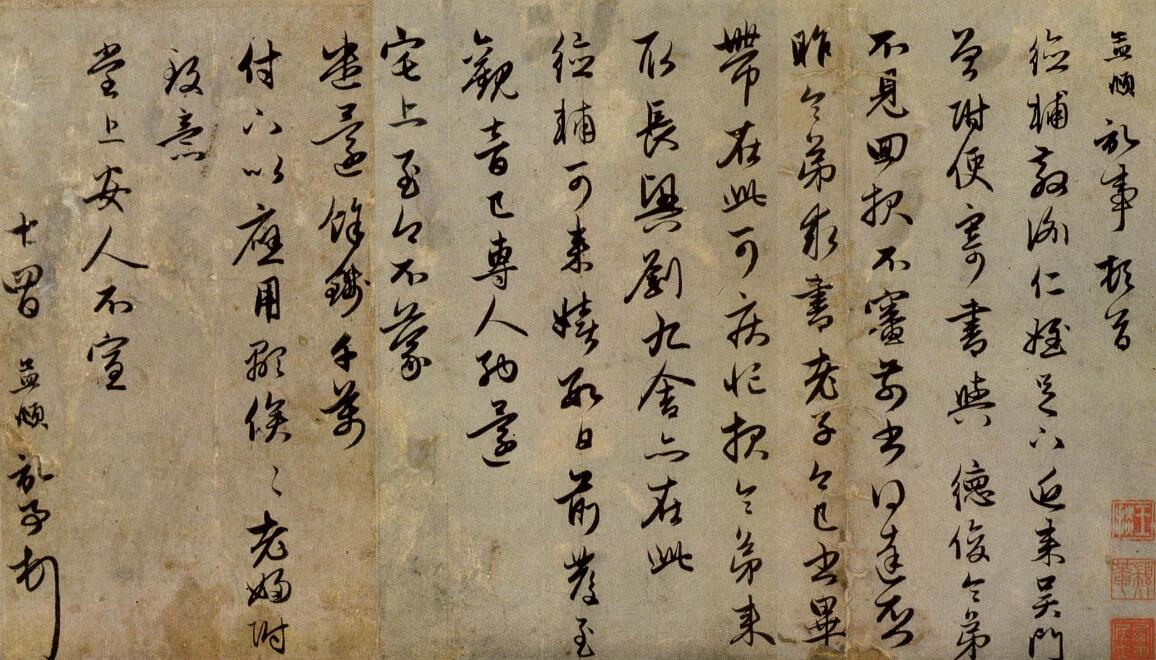 孟頫記事頓首
德輔教諭仁姪足下近来吳門
曾附便寄書與德俊令弟
不見回報不審前書得達否
昨令弟求書老子今已書畢
帶在此可疾忙報令弟来
取長興劉九舍亦在此
德輔可来嬉數日前發至
觀音已專人納還
宅上至今不蒙
遣還餘鈔千萬
付下以應用顒俟〻老婦附
致意
堂上安人不宣
十四日孟頫記事